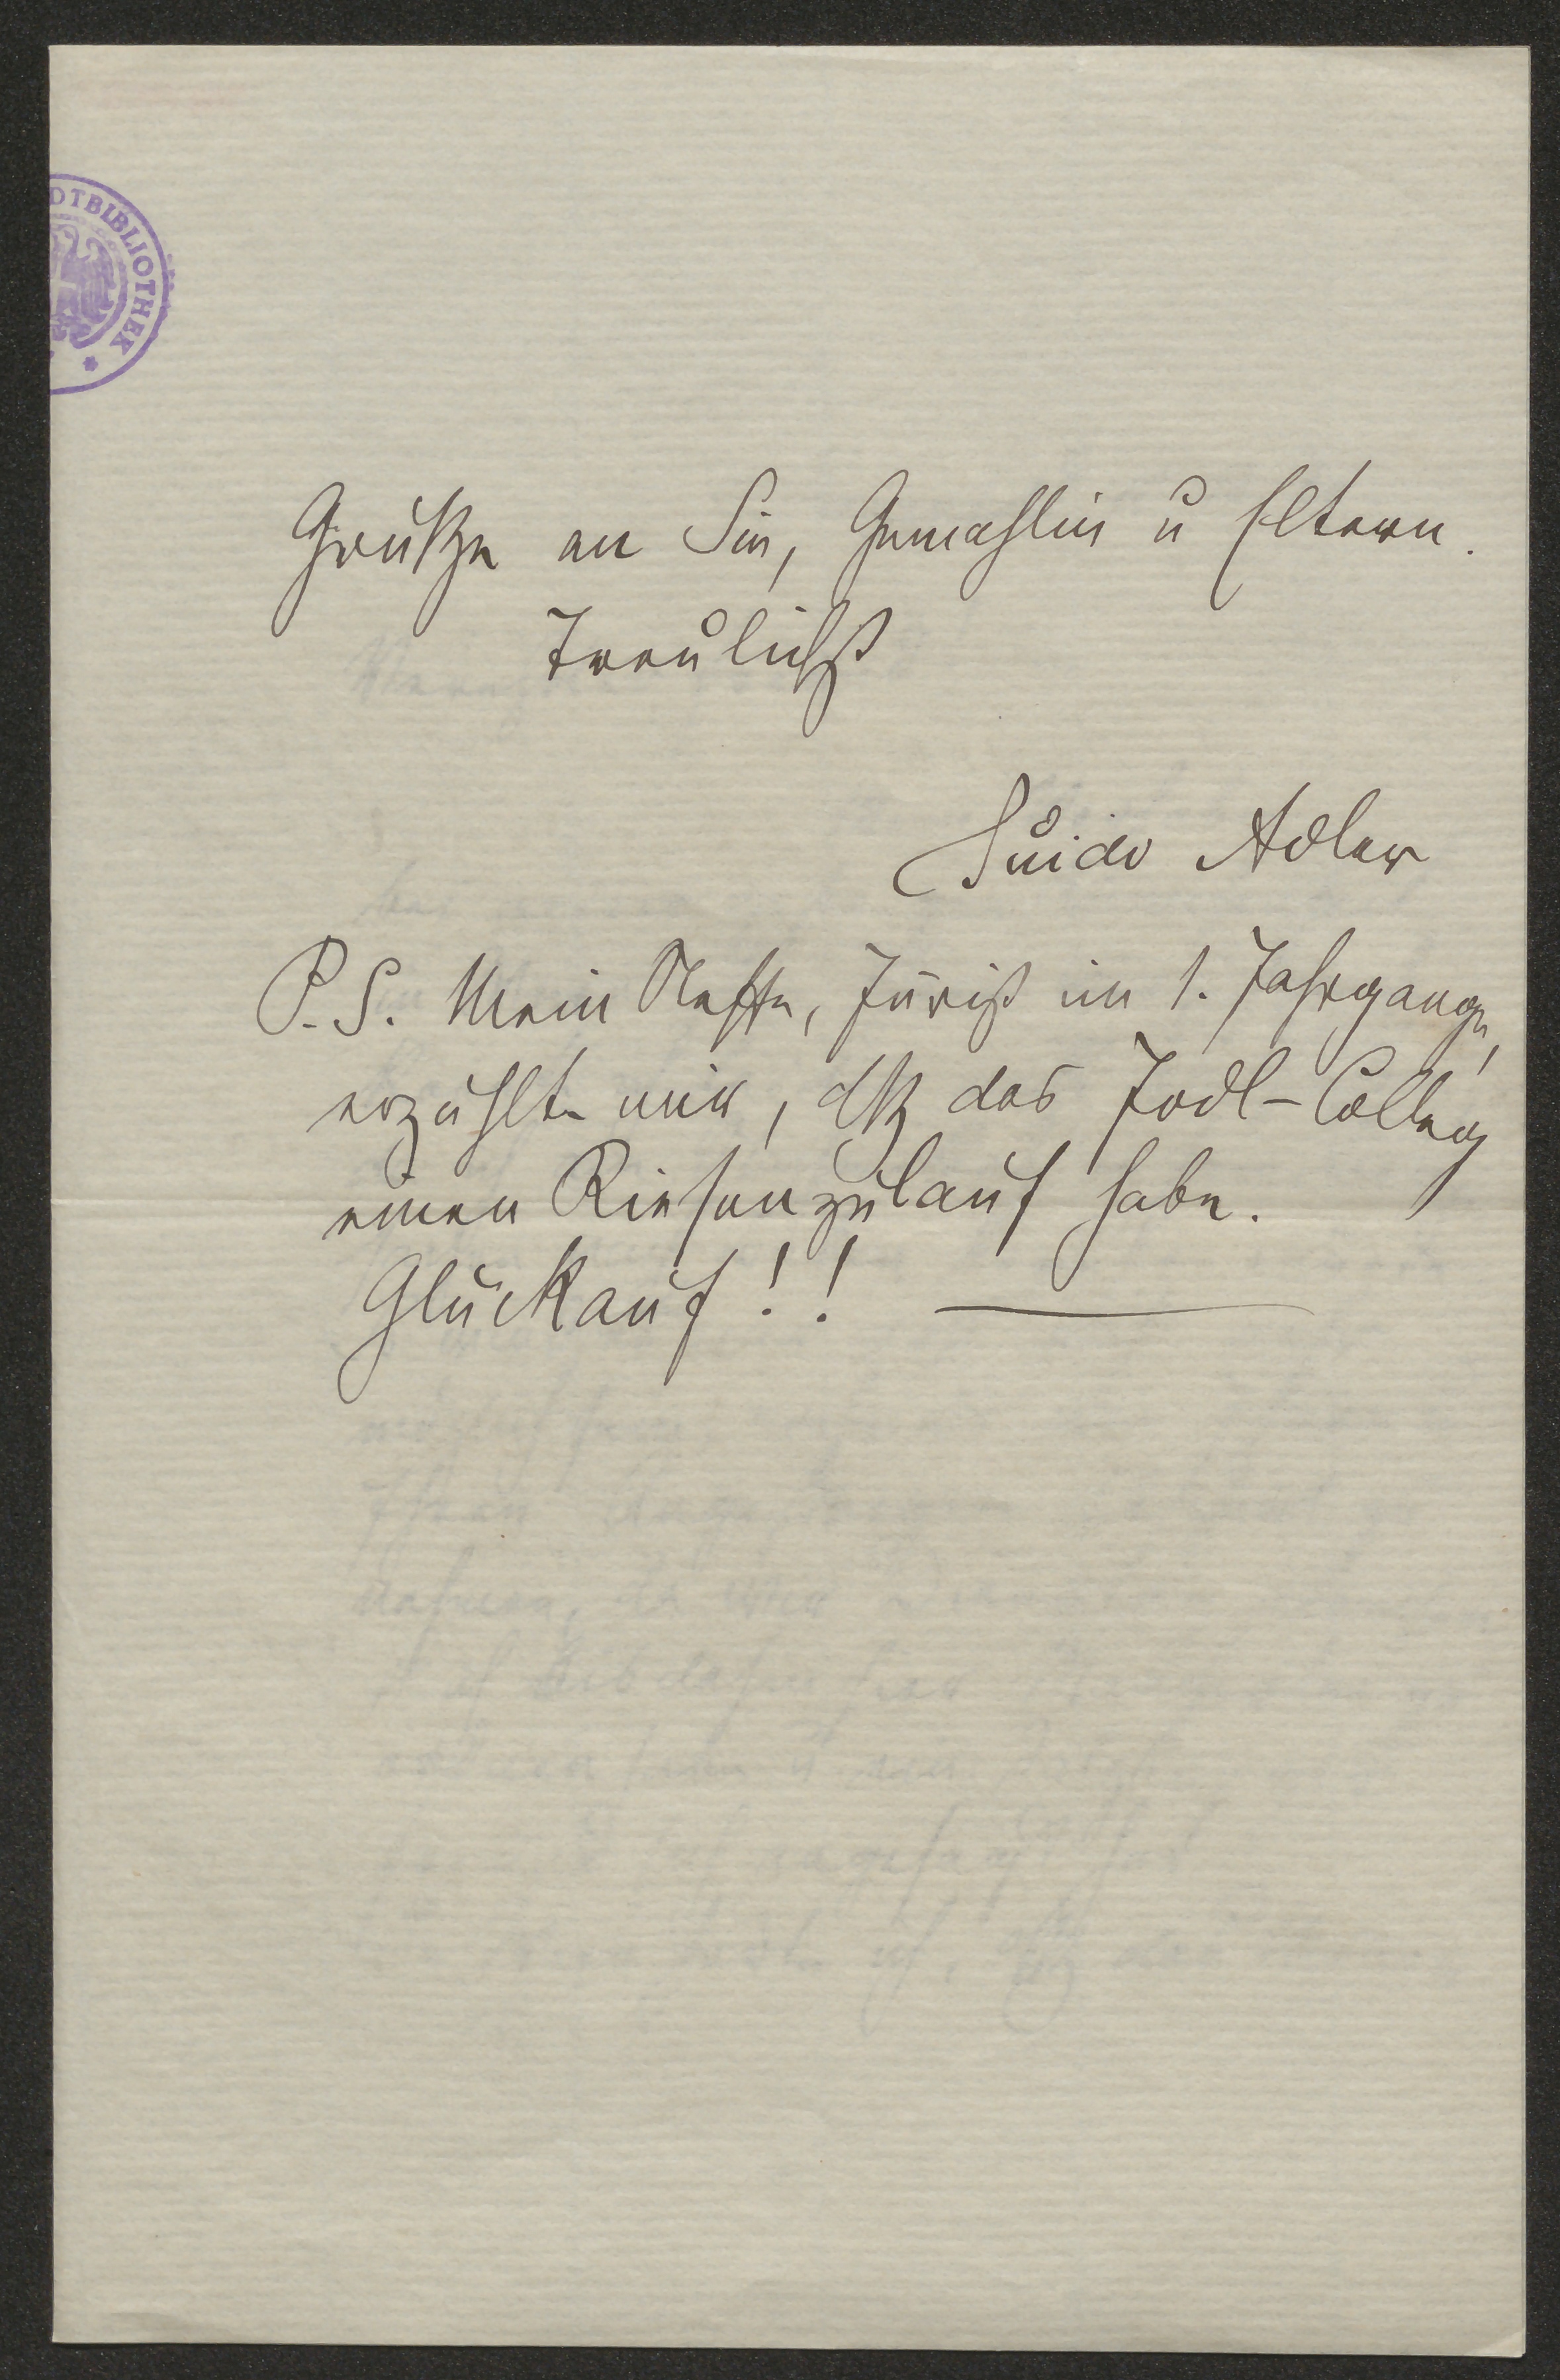 DTBIBLIOTHEK *
Grüße an Sie, Gemahlin u Eltern.
Treulichst
Guido Adler
P.S. Mein Neffe, Jurist im 1. Jahrgange,
erzählte mir, dß das Jodl-Colleg
einen Riesenzulauf habe.
Glückauf!! —